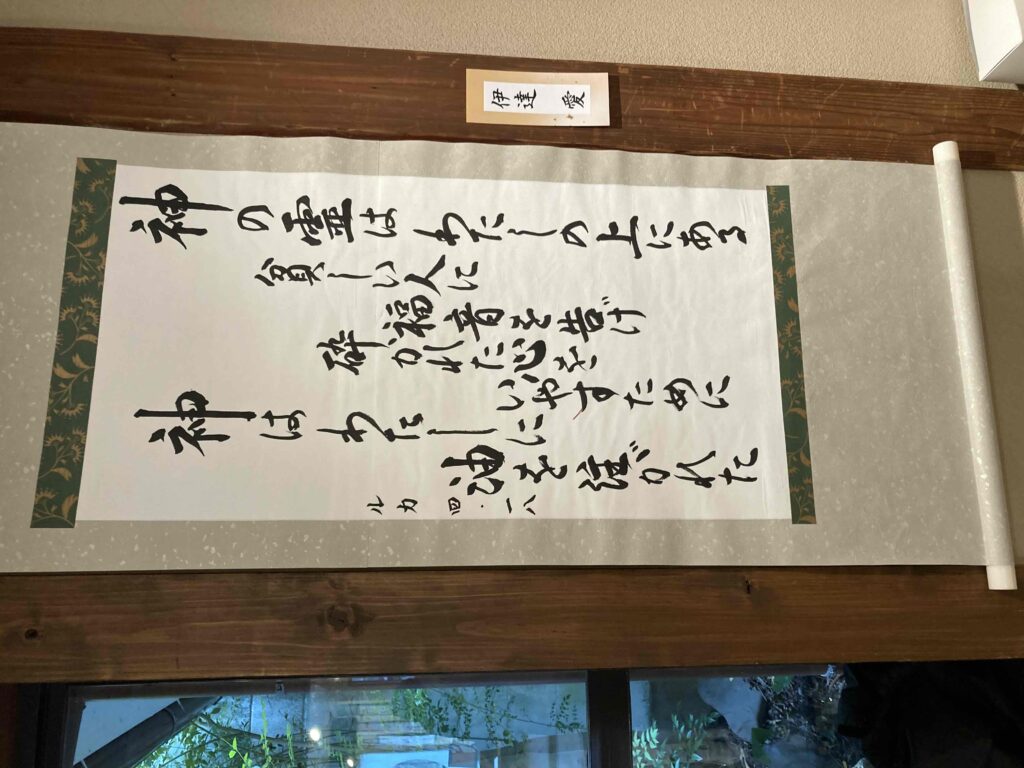 神の霊はわたしの上にある
貧しい人に
福音を告げ
砕かれた心を
いやすために
神はわたしに
油を注がれた
ルカ 四・一八
伊達 愛